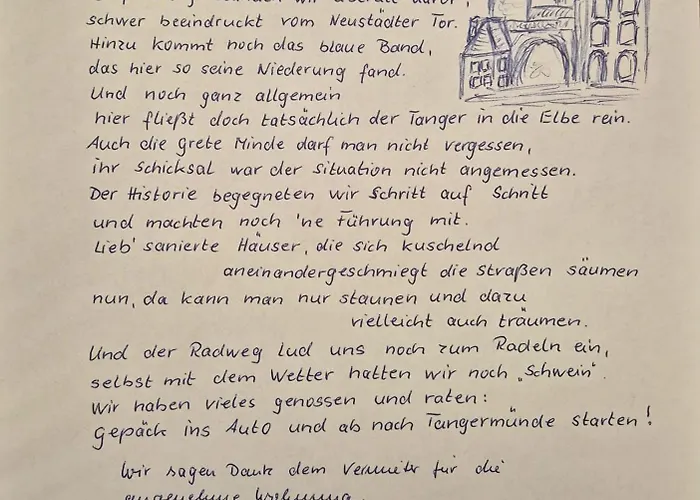 schwer beeindruckt vom Neustädter Tor.
Hinzu kommt noch das blaue Band,
das hier so seine Niederung fand.
Und noch ganz allgemein
hier fließt doch tatsächlich der Tanger in die Elbe rein.
Auch die grete Minde darf man nicht vergessen,
ihr Schicksal war der Situation nicht angemessen.
Der Historie begegneten wir Schritt auf Schritt
und machten noch 'ne Führung mit.
Lieb' sanierte Häuser, die sich kuschelnd
aneinandergeschmiegt die Straßen säumen
nun, da kann man nur staunen und dazu
vielleicht auch träumen.
Und der Radweg lud uns noch zum Radeln ein,
selbst mit dem Wetter hatten wir noch „Schwein".
Wir haben vieles genossen und raten:
Gepäck ins Auto und ab nach Tangermünde starten!
Wir sagen Dank dem Vermieter für die